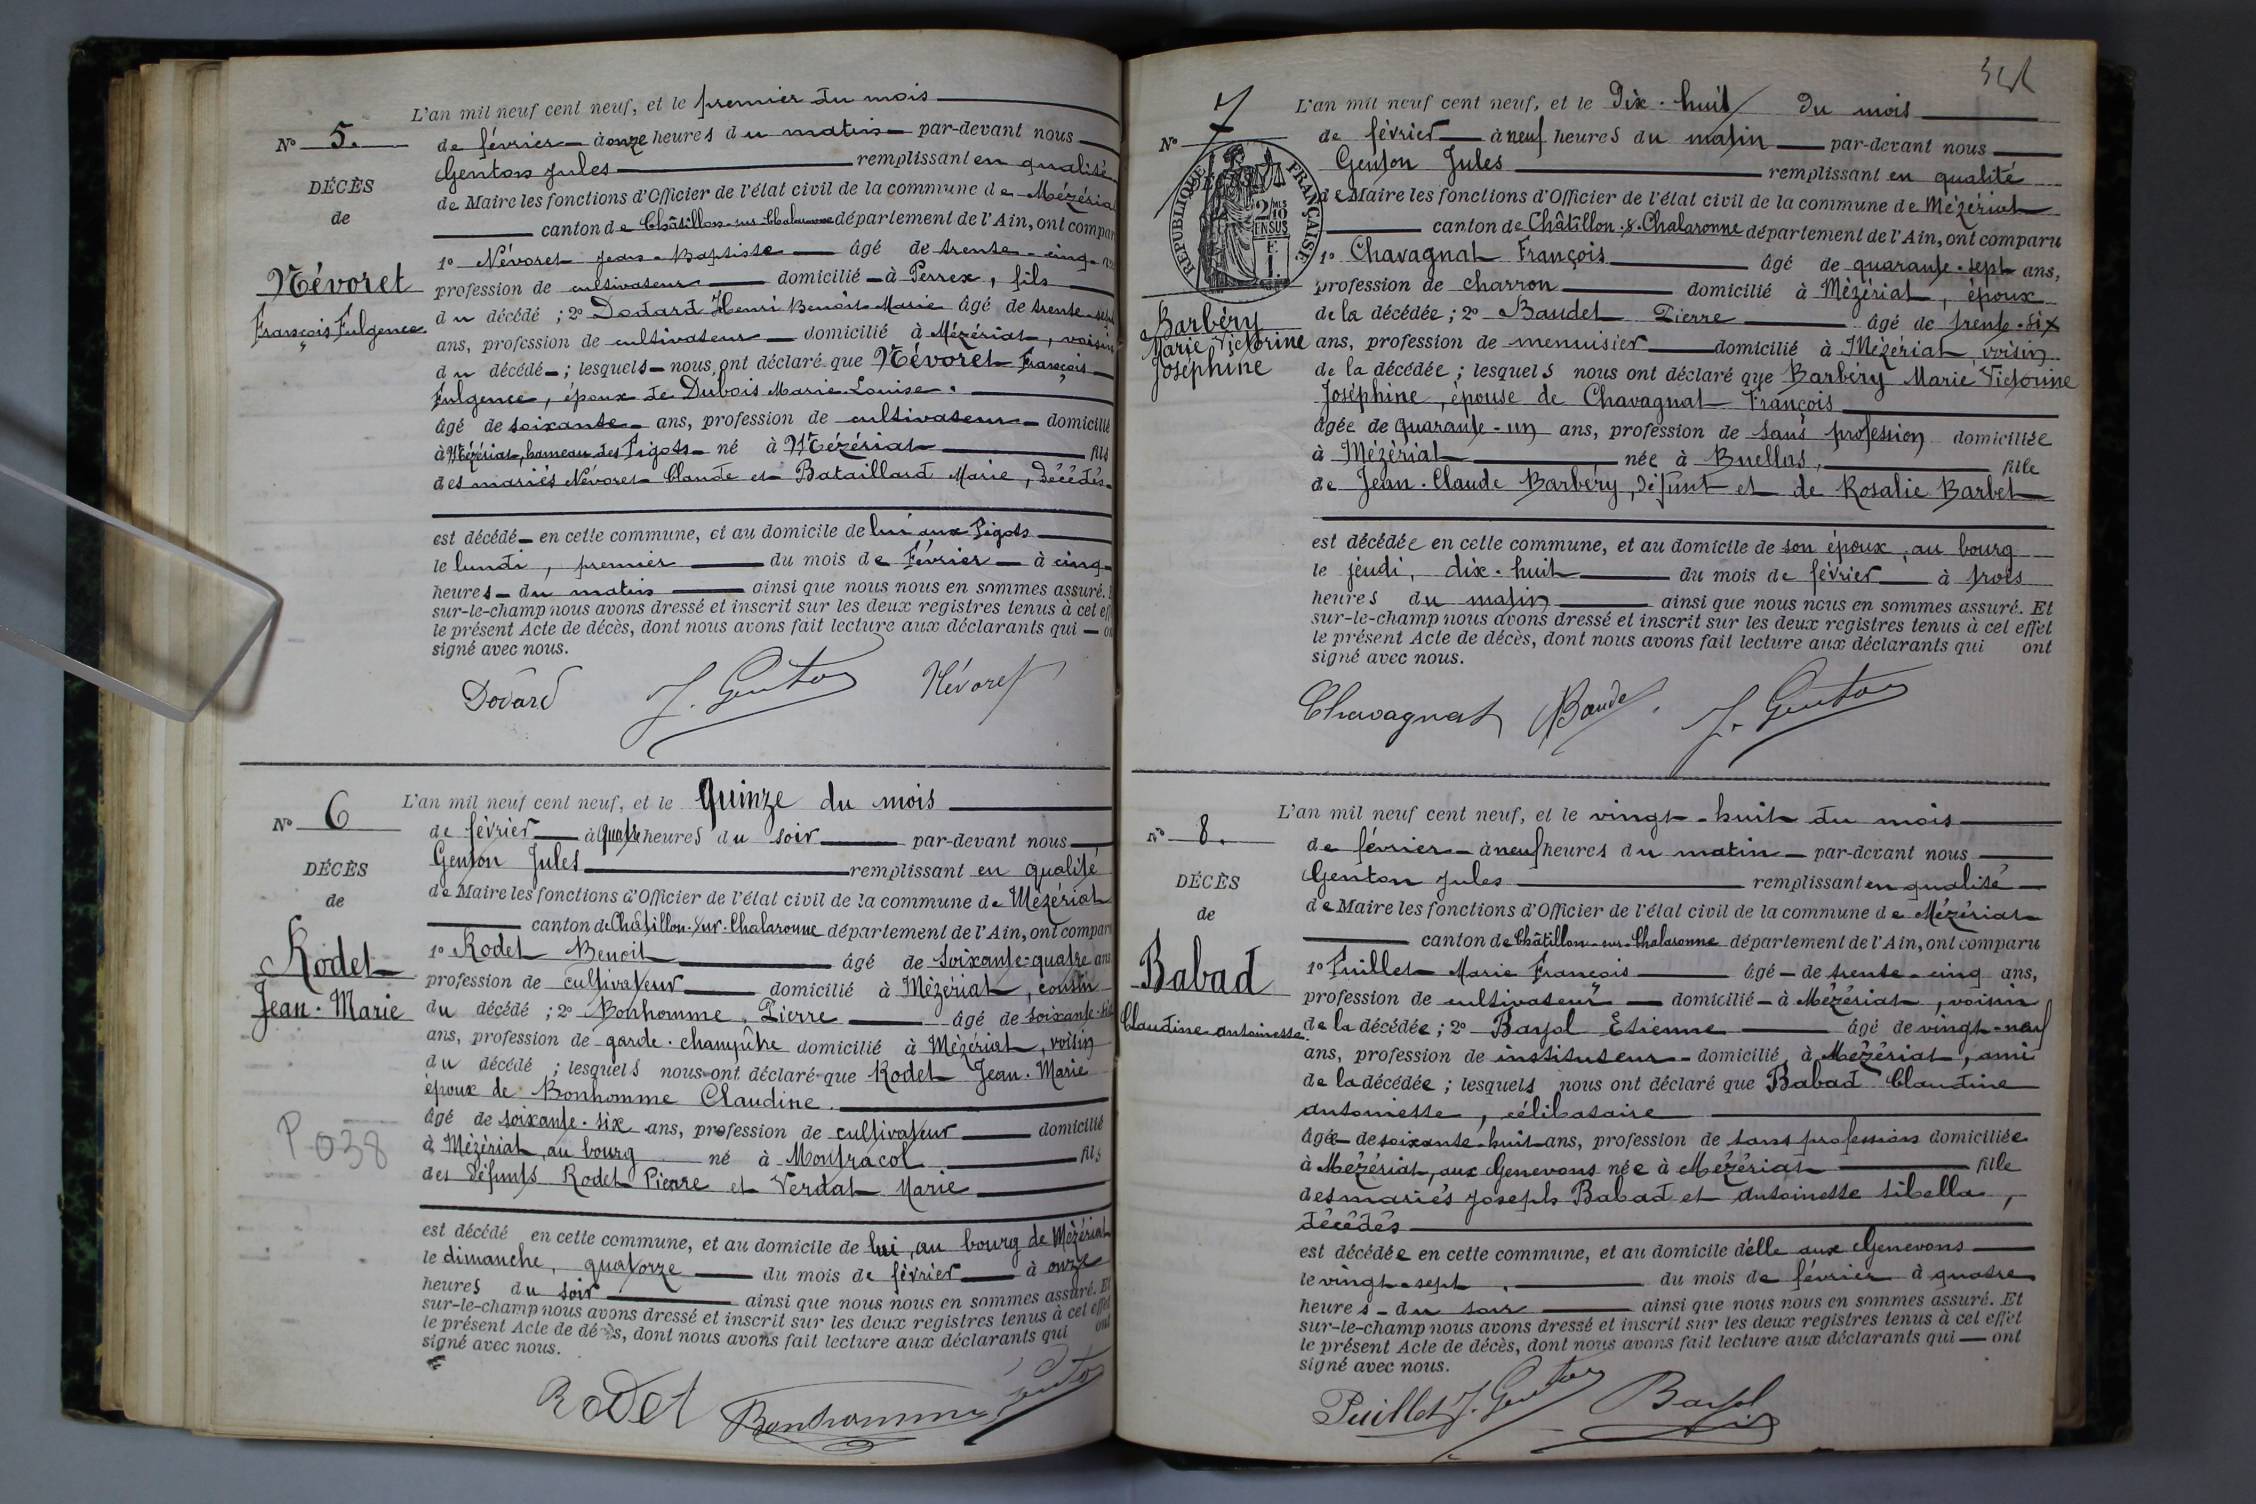 L'an mil neuf cent neuf, et le premier du mois
N° 5.
de février à onze heures du matin par-devant nous
Genton Jules remplissant en qualité
DÉCÈS
de Maire les fonctions d'Officier de l'état civil de la commune de Mézéria
de
canton de Châtillon-sur-Chalaronne département de l'Ain, ont compar
1° Névoret Jean-Baptiste âgé de trente-cinq
Névoret
François Fulgence
profession de cultivateur domicilié à Perrex, fils
du décédé ; 2° Dodard Henri Benoît Marie âgé de trente-sept
ans, profession de cultivateur domicilié à Mézériat, voisin
du décédé ; lesquels nous ont déclaré que Névoret François
Fulgence, époux de Dubois Marie Louise.
âgé de soixante ans, profession de cultivateur domicilié
à Mézériat, hameau des Pigots né à Mézériat fils
des mariés Névoret Claude et Bataillard Marie, décédés
est décédé en cette commune, et au domicile de lui aux Pigots
le lundi, premier du mois de Février à cinq
heures du matin ainsi que nous nous en sommes assuré.
sur-le-champ nous avons dressé et inscrit sur les deux registres tenus à cet eff
le présent Acte de décès, dont nous avons fait lecture aux déclarants qui
signé avec nous.
Dodard J. Genton Névoret
L'an mil neuf cent neuf, et le Quinze du mois
N° 6
de février à quatre heures du soir par-devant nous
Genton Jules remplissant en qualité
DÉCÈS
de Maire les fonctions d'Officier de l'état civil de la commune de Mézériat
de
canton de Châtillon-sur-Chalaronne département de l'Ain, ont compar
Rodet
Jean-Marie
1° Rodet Benoit âgé de soixante-quatre ans
profession de cultivateur domicilié à Mézériat, cousin
du décédé ; 2° Bonhomme Pierre âgé de soixante-six
ans, profession de garde-champêtre domicilié à Mézériat, voisin
du décédé ; lesquels nous ont déclaré que Rodet Jean-Marie
époux de Bonhomme Claudine.
âgé de soixante-six ans, profession de cultivateur domicilié
à Mézériat, au bourg né à Montracol fils
des défunts Rodet Pierre et Verdat Marie
P 038
est décédé en cette commune, et au domicile de lui, au bourg de Mézériat
le dimanche, quatorze du mois de février à onze
heures du soir ainsi que nous nous en sommes assuré. Et
sur-le-champ nous avons dressé et inscrit sur les deux registres tenus à cet effet
le présent Acte de décès, dont nous avons fait lecture aux déclarants qui ont
signé avec nous.
Rodet Bonhomme J Genton
L'an mil neuf cent neuf, et le Dix-huit du mois
N° 7
de février à neuf heures du matin par-devant nous
Genton Jules remplissant en qualité
de Maire les fonctions d'Officier de l'état civil de la commune de Mézériat
canton de Châtillon-s-Chalaronne département de l'Ain, ont comparu
RÉPUBLIQUE FRANÇAISE
2/10
EN SUS
1 F.
1° Chavagnat François âgé de quarante-sept ans,
profession de charron domicilié à Mézériat, époux
Barbéry
Marie Victorine
Joséphine
de la décédée ; 2° Baudet Pierre âgé de trente-six
ans, profession de menuisier domicilié à Mézériat, voisin
de la décédée ; lesquels nous ont déclaré que Barbéry Marie Victorine
Joséphine, épouse de Chavagnat François
âgée de quarante-un ans, profession de sans profession domiciliée
à Mézériat née à Buellas, fille
de Jean-Claude Barbéry, défunt et de Rosalie Barbet
est décédée en cette commune, et au domicile de son époux, au bourg
le jeudi, dix-huit du mois de février à trois
heures du matin ainsi que nous nous en sommes assuré. Et
sur-le-champ nous avons dressé et inscrit sur les deux registres tenus à cet effet
le présent Acte de décès, dont nous avons fait lecture aux déclarants qui ont
signé avec nous.
Chavagnat Baudet J. Genton
L'an mil neuf cent neuf, et le vingt-huit du mois
N° 8.
de février à neuf heures du matin par-devant nous
Genton Jules remplissant en qualité
DÉCÈS
de Maire les fonctions d'Officier de l'état civil de la commune de Mézériat
de
canton de Châtillon-sur-Chalaronne département de l'Ain, ont comparu
Babad
Claudine Antoinette
1° Puillet Marie François âgé de trente-cinq ans,
profession de cultivateur domicilié à Mézériat, voisin
de la décédée ; 2° Bayol Étienne âgé de vingt-neuf
ans, profession de instituteur domicilié à Mézériat, ami
de la décédée ; lesquels nous ont déclaré que Babad Claudine
Antoinette, célibataire
âgée de soixante-huit ans, profession de sans profession domiciliée
à Mézériat, aux Genevons née à Mézériat fille
des mariés Joseph Babad et Antoinette Sibella,
décédés
est décédée en cette commune, et au domicile d'elle aux Genevons
le vingt-sept. du mois de février à quatre
heures du soir ainsi que nous nous en sommes assuré. Et
sur-le-champ nous avons dressé et inscrit sur les deux registres tenus à cet effet
le présent Acte de décès, dont nous avons fait lecture aux déclarants qui ont
signé avec nous.
Puillet J. Genton Bayol